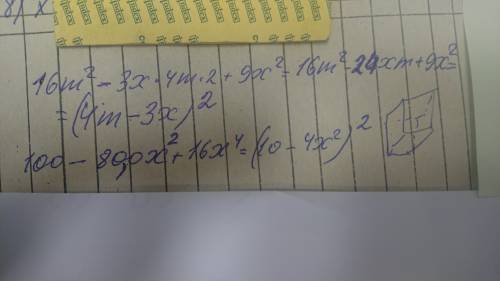 8) x
16m² - 3x·4m·2 + 9x² = 16m² - 24xm + 9x² =
= (4m - 3x)²
100 - 80,0x² + 16x⁴ = (10 - 4x²)²